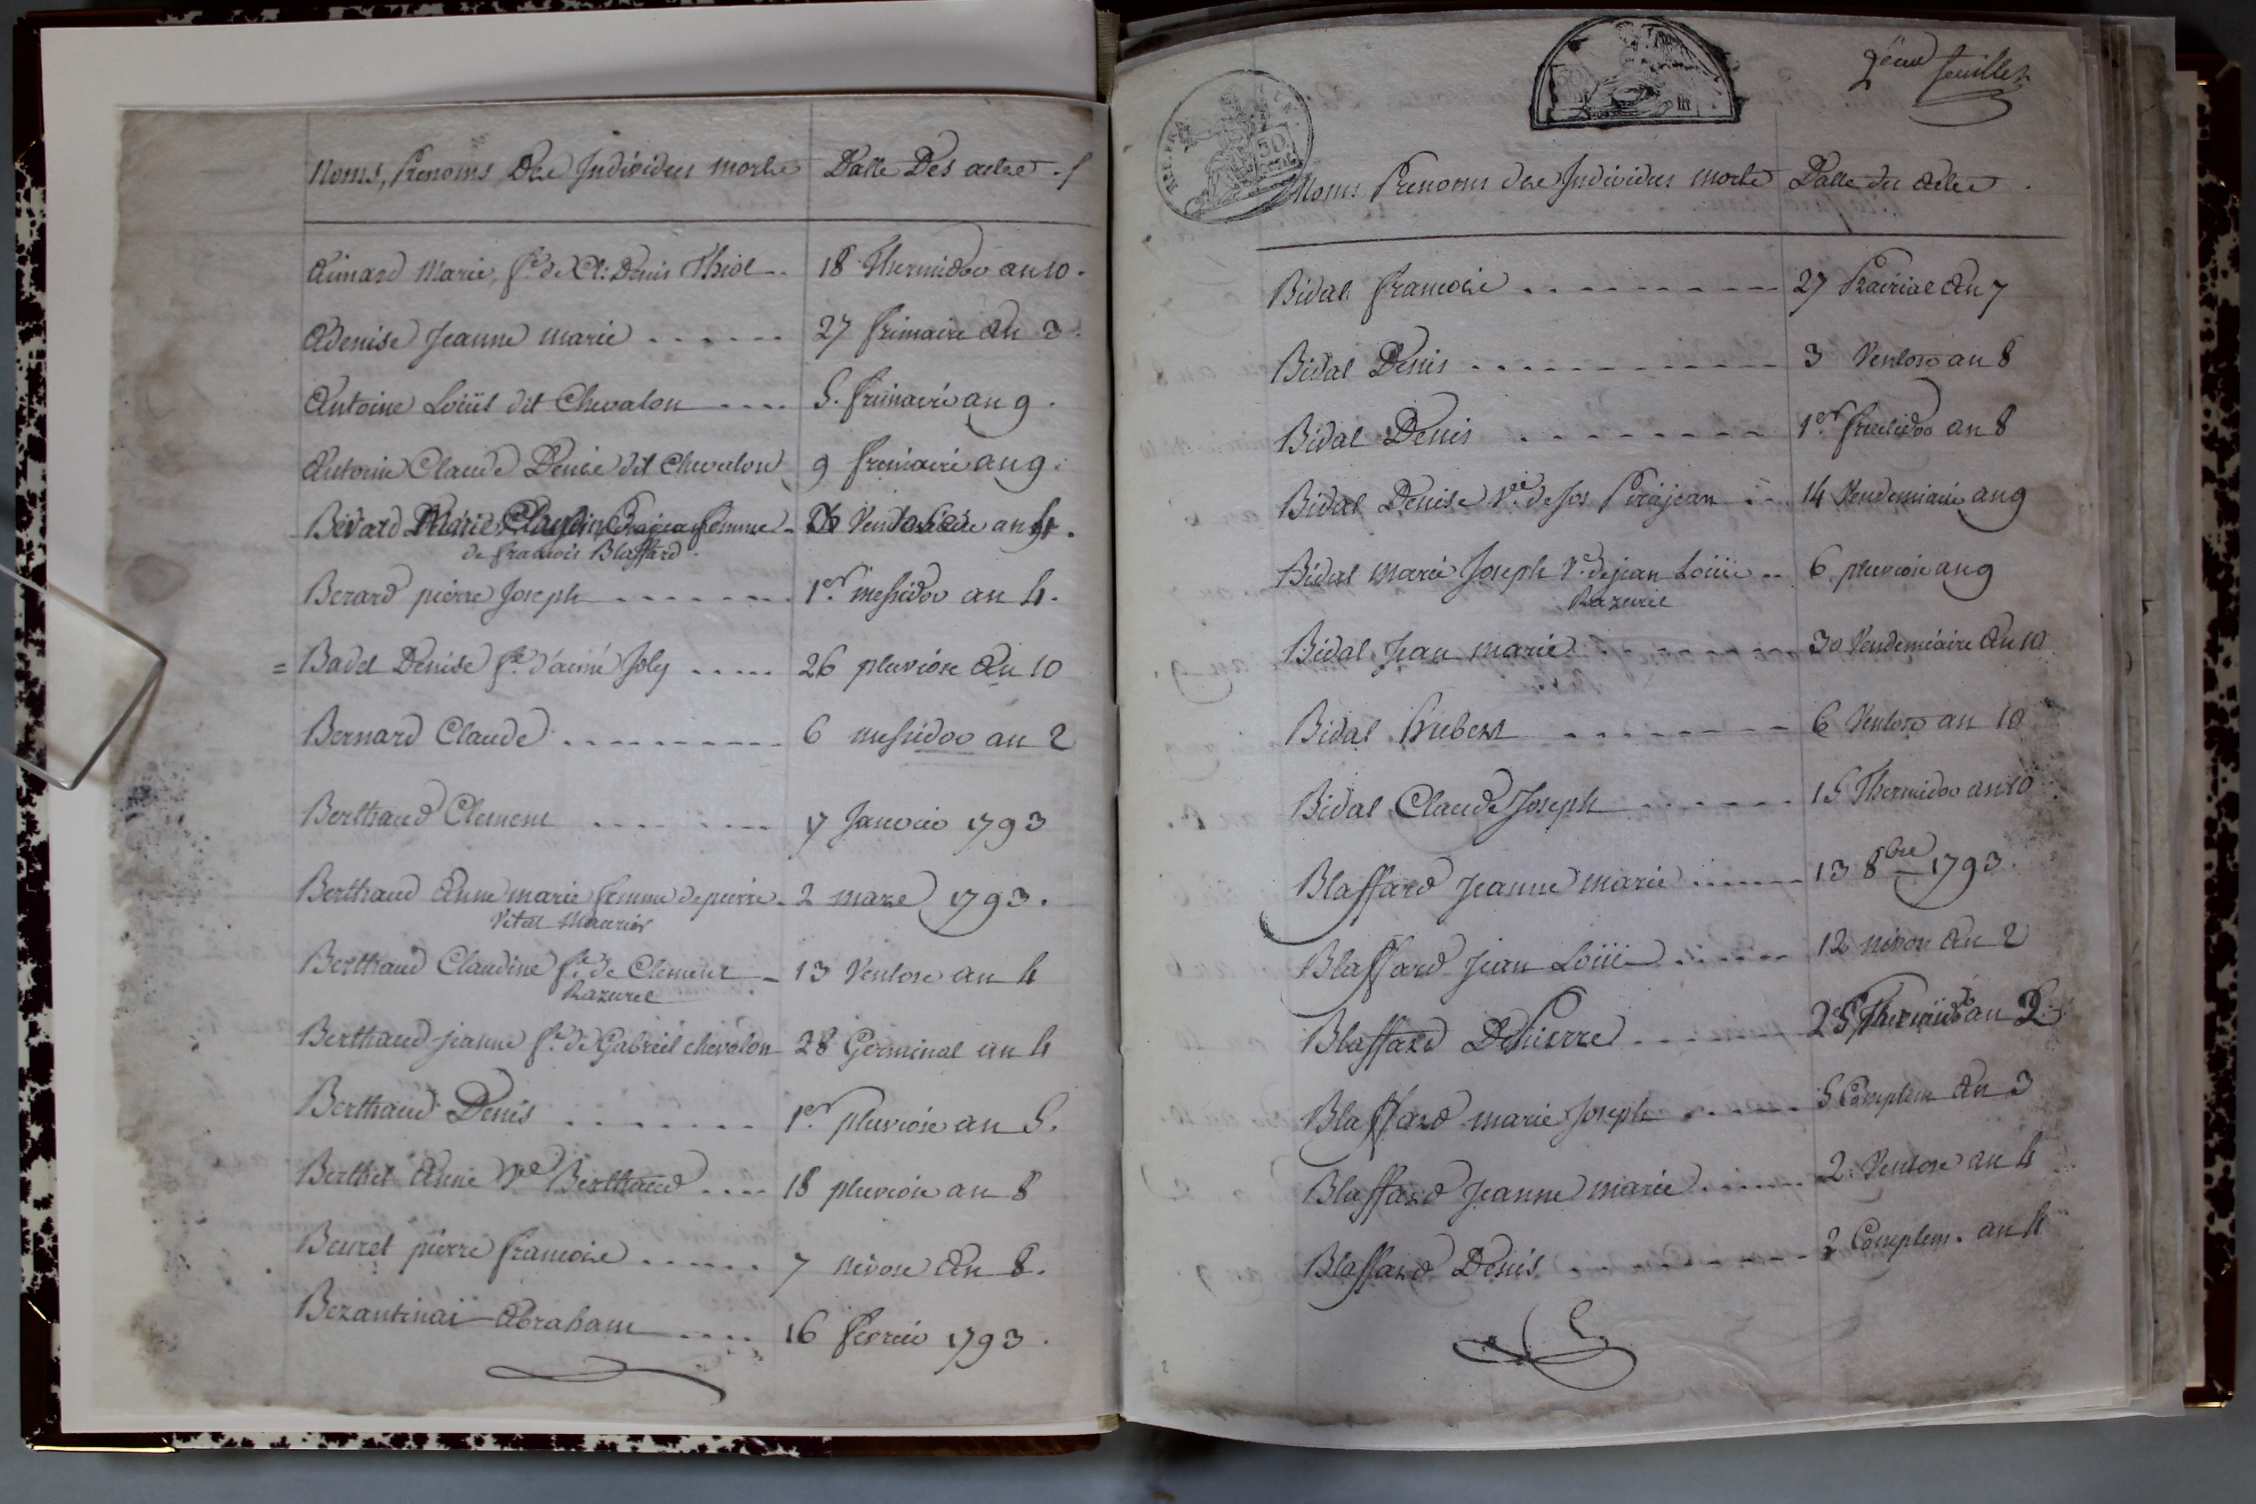 Noms, Prenoms Des Individus morts Datte Des actes
Aimard Marie, fe de Cl: Denis Thiol 18 Thermidor an 10.
Adenise Jeanne marie 27 frimaire an 3.
Antoine Loüis dit Chevalon 5. frimaire an 9.
Antoine Claude Denise dit Chevalon 9 frimaire an 9.
Bérard femme an 4.
de francois Blaffard.
Berard pierre Joseph 1er messidor an 4.
= Badel Denise fe d'aimé Joly 26 pluviose an 10
Bernard Claude 6 messidor an 2
Berthaud Clement 17 Janvier 1793
Berthaud anne marie femme de pierre 2 mars 1793.
Vital
Berthaud Claudine fe de Clement 13 Ventose an 4
Razurel
Berthaud jeanne fe de Gabriel chevalon 28 Germinal an 4
Berthaud Denis 1er pluviose an 5.
Berthet anne Ve Berthaud 18 pluviose an 8
Beuret pierre francois 7 nivose an 8.
Abraham 16 fevrier 1793.
2eme feuillet
REP. FRA
50
Noms Prenoms des Individus morts Datte des actes
Bidal francoise 27 Prairial an 7
Bidal Denis 3 Ventose an 8
Bidal Denis 1er fructidor an 8
Bidal Denise Ve de Jos 14 Vendemiaire an 9
Bidal marie Joseph Ve de jean Loüis 6 pluviose an 9
Razurel
Bidal Jean marie 30 Vendemiaire an 10
Bidal hubert 6 Ventose an 10
Bidal Claude Joseph 15 Thermidor an 10
Blaffard Jeanne marie 13 8bre 1793.
Blaffard Jean Loüis 12 nivose an 2
Blaffard Pierre an 2
Blaffard marie Joseph 5 Complem an 3
Blaffard Jeanne marie 2 Ventose an 4
Blaffard Denis 2 Complem. an 4